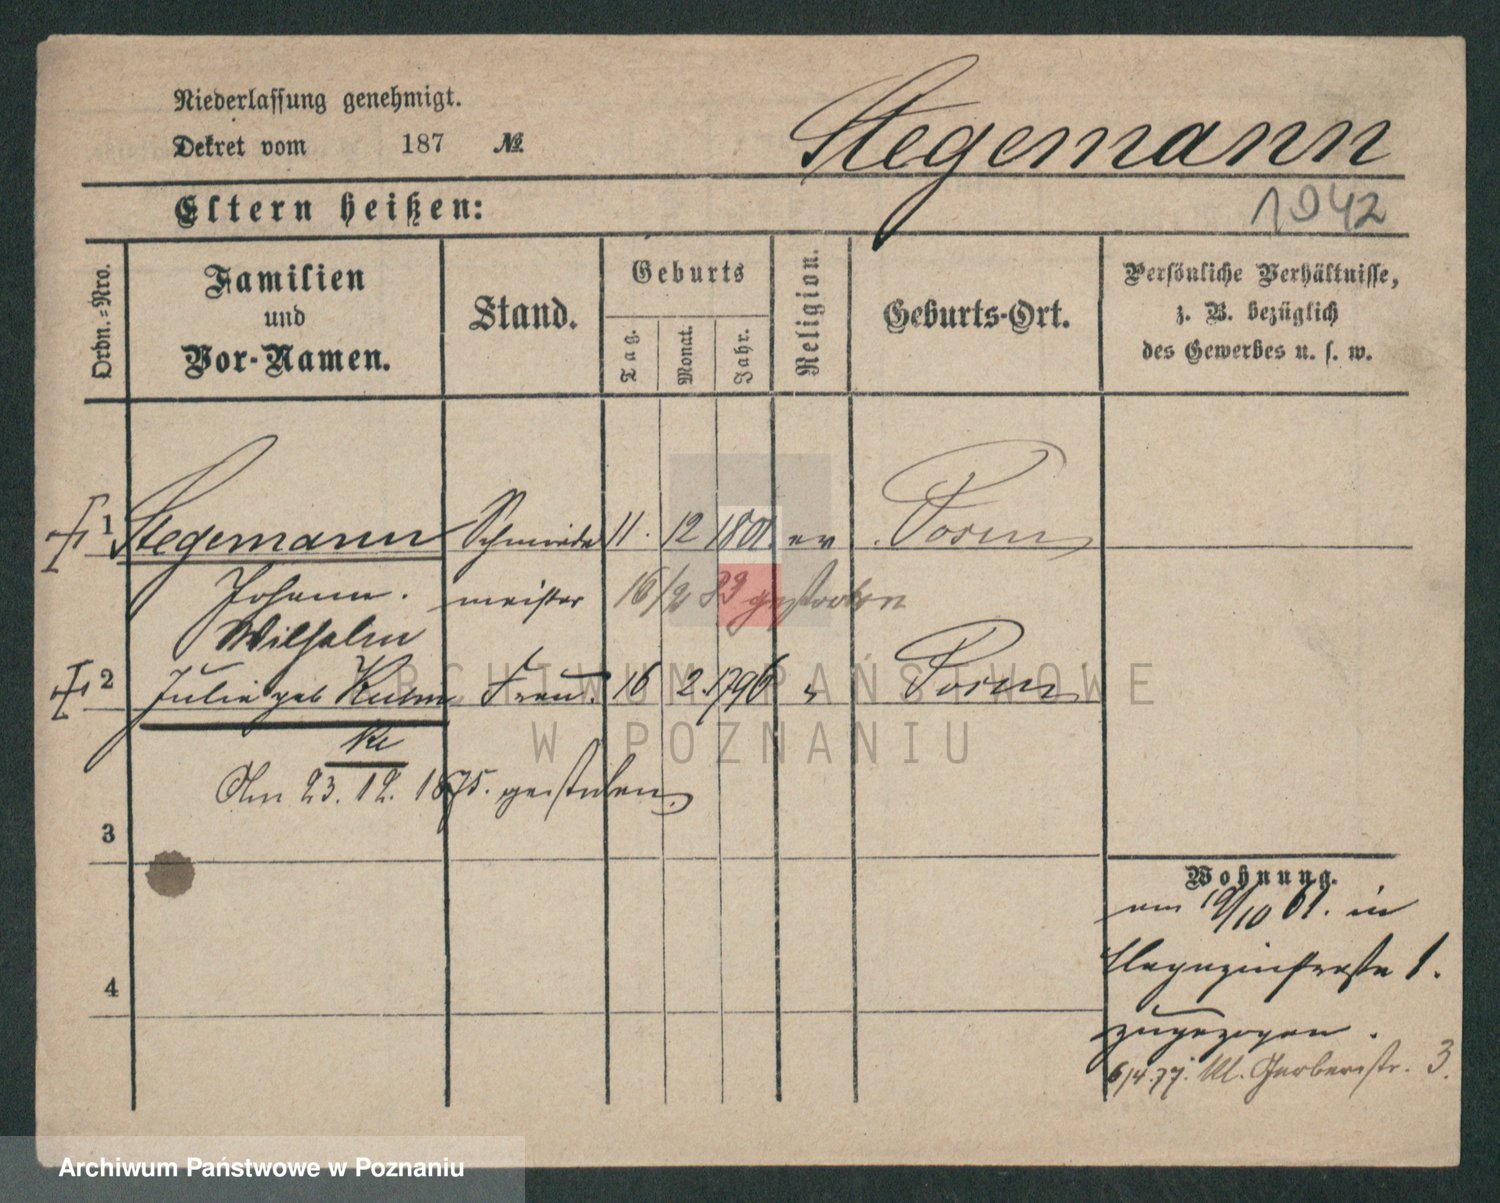 Niederlassung genehmigt.
Dekret vom 187 №
Stegemann
Eltern heißen:
1942
Ordn.-Nro.
Familien
und
Vor-Namen.
Stand.
Geburts
Tag.
Monat.
Jahr.
Religion.
Geburts-Ort.
Persönliche Verhältnisse,
z. B. bezüglich
des Gewerbes u. s. w.
1 Stegemann Schmiede 11. 12 1801. ev Posen
Johann. meister 16/2 89 gestorben
Wilhelm
2 Julie geb Frau. 16 2. 1796 " Posen
Am 23. 12. 1875. gestorben.
3
4
Wohnung.
am 19/10 61. in
Magazinstraße 1.
zugezogen.
6/4.77. Kl. Gerberstr. 3.
ARCHIWUM PAŃSTWOWE
W POZNANIU
Archiwum Państwowe w Poznaniu